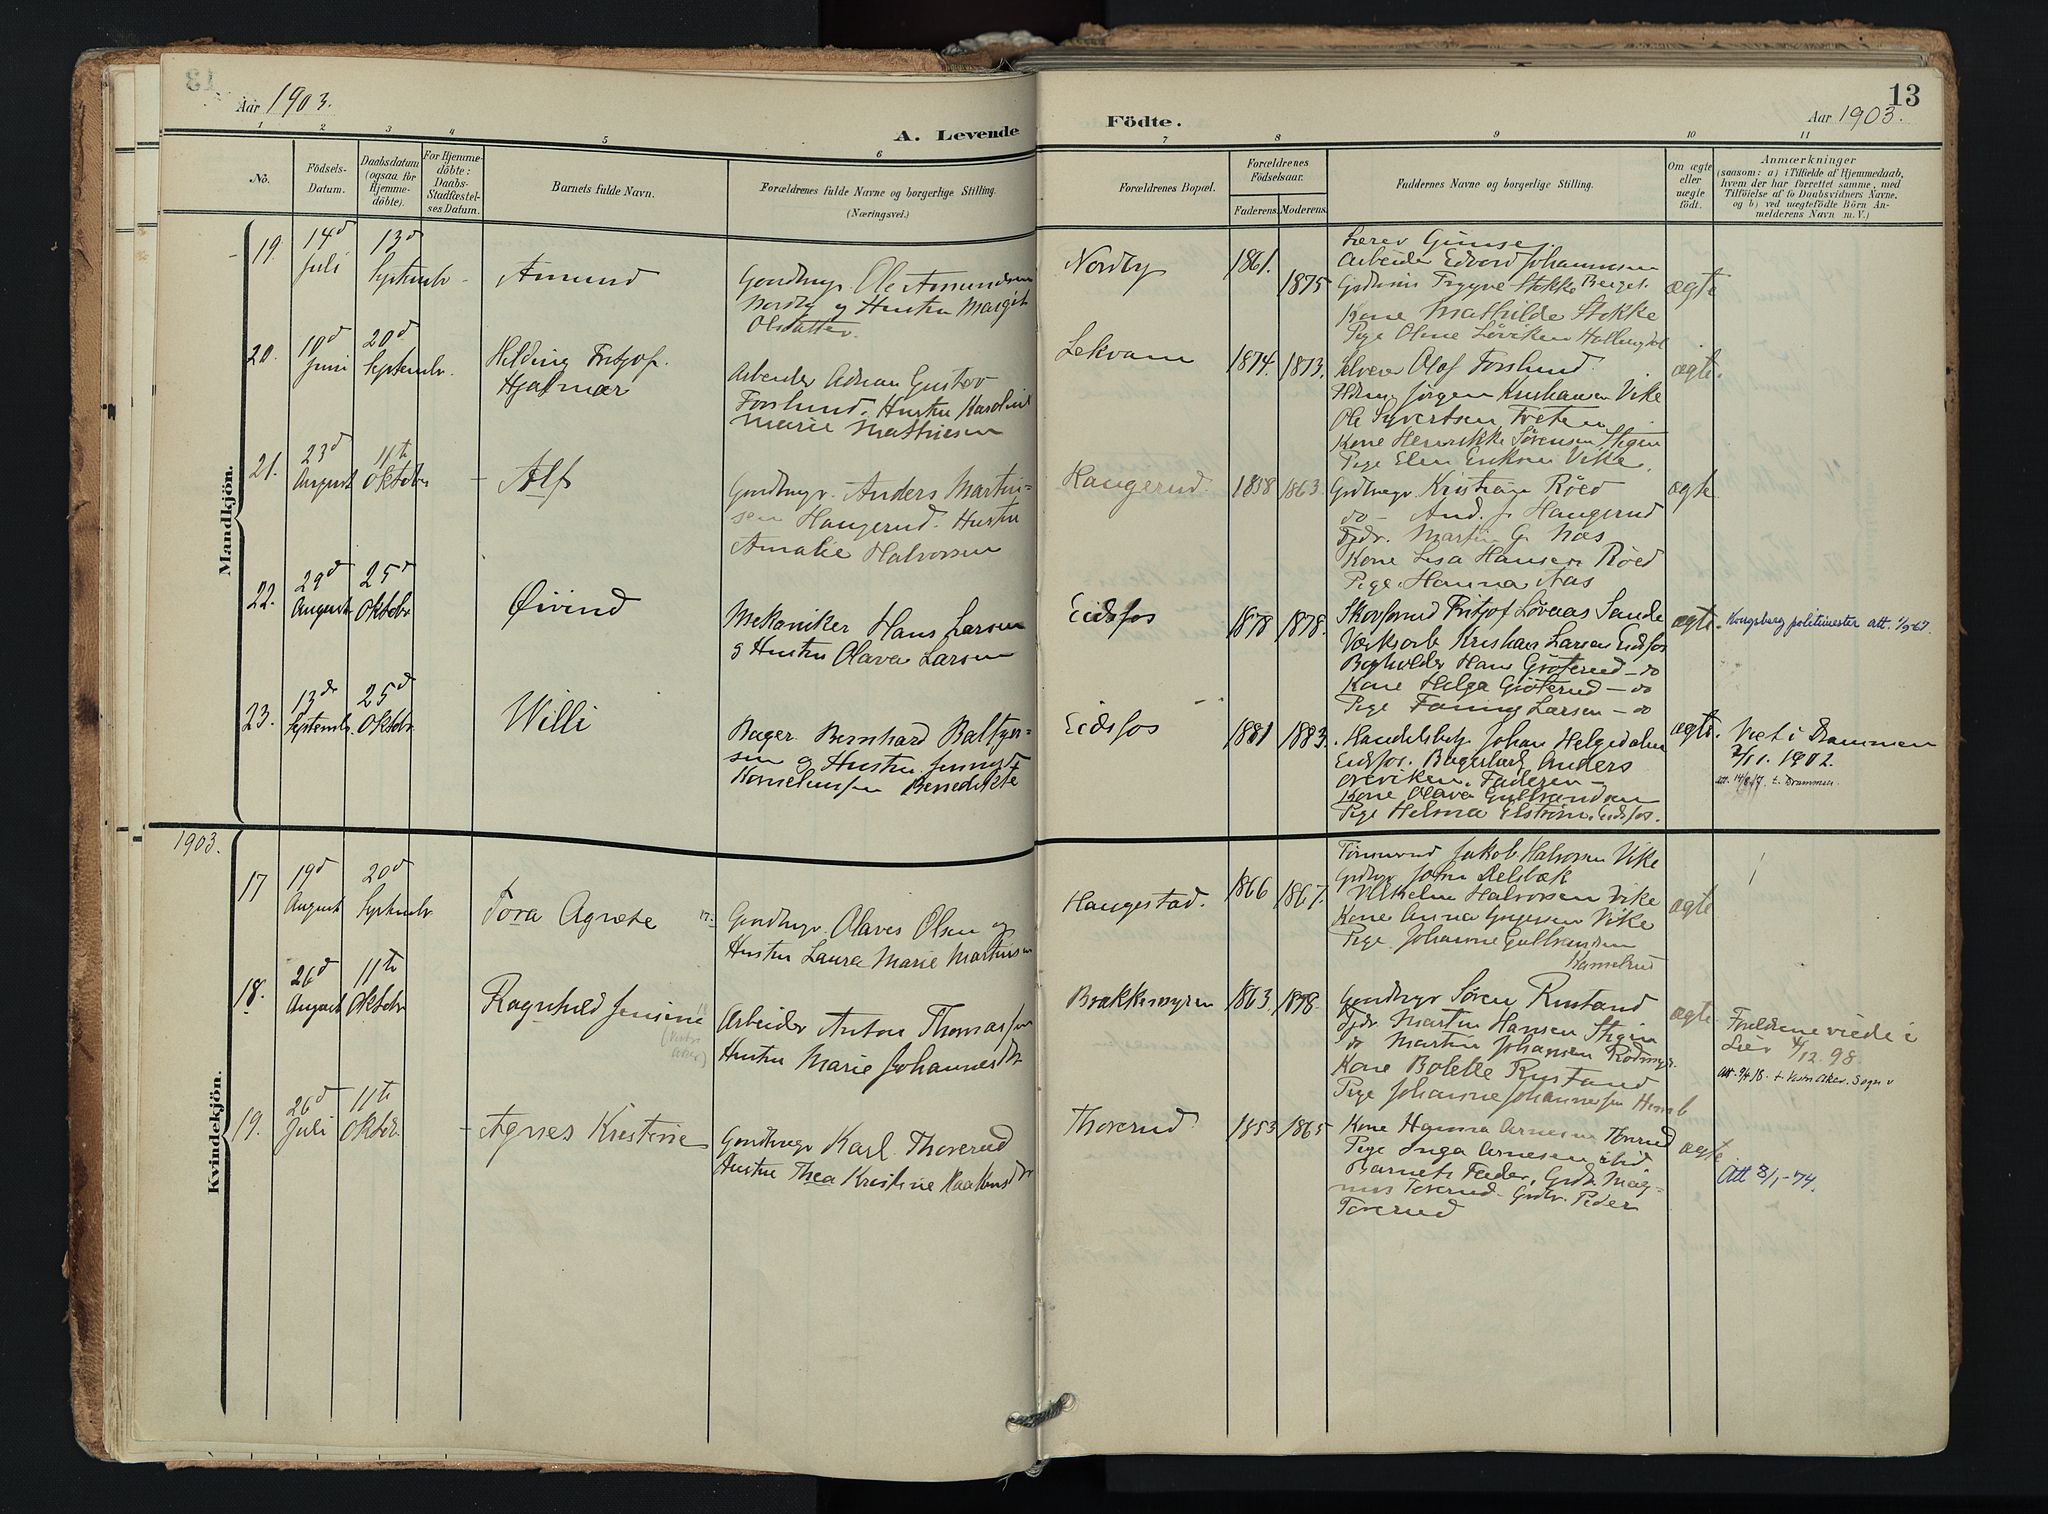 13
Aar 1903.
A. Levende Födte.
Aar 1903.
1 2 3 4 5 6 7 8 9 10 11
No.
Födsels-
Datum.
Daabsdatum
(ogsaa for
Hjemme-
döbte).
For Hjemme-
döbte:
Daabs-
Stadfæstel-
ses Datum.
Barnets fulde Navn.
Forældrenes fulde Navne og borgerlige Stilling.
(Næringsvei.)
Forældrenes Bopæl.
Forældrenes
Födselsaar.
Faderens. Moderens.
Faddernes Navne og borgerlige Stilling.
Om ægte
eller
uægte
födt.
Anmærkninger
(saasom: a) i Tilfælde af Hjemmedaab,
hvem der har forrettet samme, med
Tilföielse af to Daabsvidners Navne,
og b) ved uægtefödte Börn An-
melderens Navn m. V.)
Mandkjön.
19. 14d Juli
13d Septembr
Amund
Gaardbrgr. Ole Amundsen
Nordby og Hustru Margit
Olsdatter
Nordby
1861. 1875
Lærer Gimse.
Arbeider Edvard Johannesen
Trygve Stokke Berget.
Kone Mathilde Stokke
Pige Oline Løviken
ægte
20. 10d Juni
20d Septembr.
Hilding Fritjof
Hjalmar
Arbeider Adrian Gustav
Forslund. Hustru Karoline
Marie Mathiesen
Lekvam
1874. 1873.
Olaf Forslund.
Jørgen Kristiansen Vike
Ole Syvertsen
Kone Henrikke Sørensen Stigen
Pige Elen Eriksen Vike.
ægte.
21. 23d August
11te Oktober
Alf
Gaardbrgr. Anders Martin-
sen Haugerud. Hustru
Amalie Halvorsen
Haugerud.
1858 1863.
Grdbrgr. Kristian Røed
do - And. J. Haugerud
Fjdr. Martin G. Aas
Kone Lisa Hansen Røed
Pige Hanna Aas
ægte.
22. 29d August
25d Oktobr
Øivind
Mekaniker Hans Larsen
og Hustru Olava Larsen
Eidsfos
1878 1878.
Fritjof Løvaas Sande
Værksarb Kristian Larsen Eidsfos
Bogholder Hans Grøterud - do
Kone Helga Grøterud - do
Pige Fanny Larsen - do
ægte.
Kongsberg politimester att. 1/9 67.
23. 13de Septembr.
25d Oktobr
Willi
Bager Bernhard Baltzer-
sen og Hustru Jenny
Korneliussen Benedikte
Eidsfos
1881 1883.
Handelsbetj. Johan Helgedalen
Eidsfos. Anders
Faderen
Kone Olava Gulbrandsen
Pige Helma Elstrøm. Eidsfos.
ægte.
Viet i Drammen
2/11. 1902.
t. Drammen
1903.
Kvindekjön.
17 19d August
20d Septembr
Tora Agnete 17.
Gaardbrgr. Olaves Olsen og
Hustru Laura Marie Martinsen
Haugestad.
1866 1867.
Jakob Halvorsen Vike
Grdbgr John Delebæk
Vilhelm Halvorsen Vike
Kone Anna Vike
Pige. Johanne Gulbrandsen
ægte
18. 26d August
11te Oktobr
Ragnhild Jensine 18
Arbeider Anton Thomassen
Hustru Marie Johannesdtr
Brækkemyren
1863. 1878.
Gaardbrgr Søren Rustand
Fjdr. Martin Hansen Stigen
do Martin Johansen
Kone Bolette Rustand
Pige Johanne Johannessen
ægte
Foreldrene viede i
Lier 4/12. 98.
19. 26d Juli
11te Oktbr.
Agnes Kristine
Gaardbrgr Karl Thorerud
Hustru Thea Kristine Haakensdtr
Thorerud
1853 1865
Kone Hanna Arnesen
Pige Inga Arnesen ibid
Barnets Fader, Grdb. Mag-
nus Torerud. Grdbr. Peder
Torerud
ægte.
Att 8/1-74.